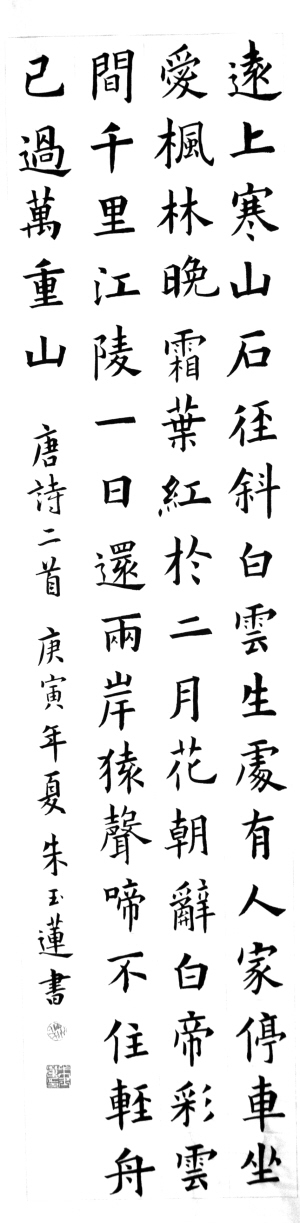 遠上寒山石徑斜白雲生處有人家停車坐
愛楓林晚霜葉紅於二月花朝辭白帝彩雲
間千里江陵一日還兩岸猿聲啼不住輕舟
已過萬重山
唐詩二首 庚寅年夏 朱玉蓮書